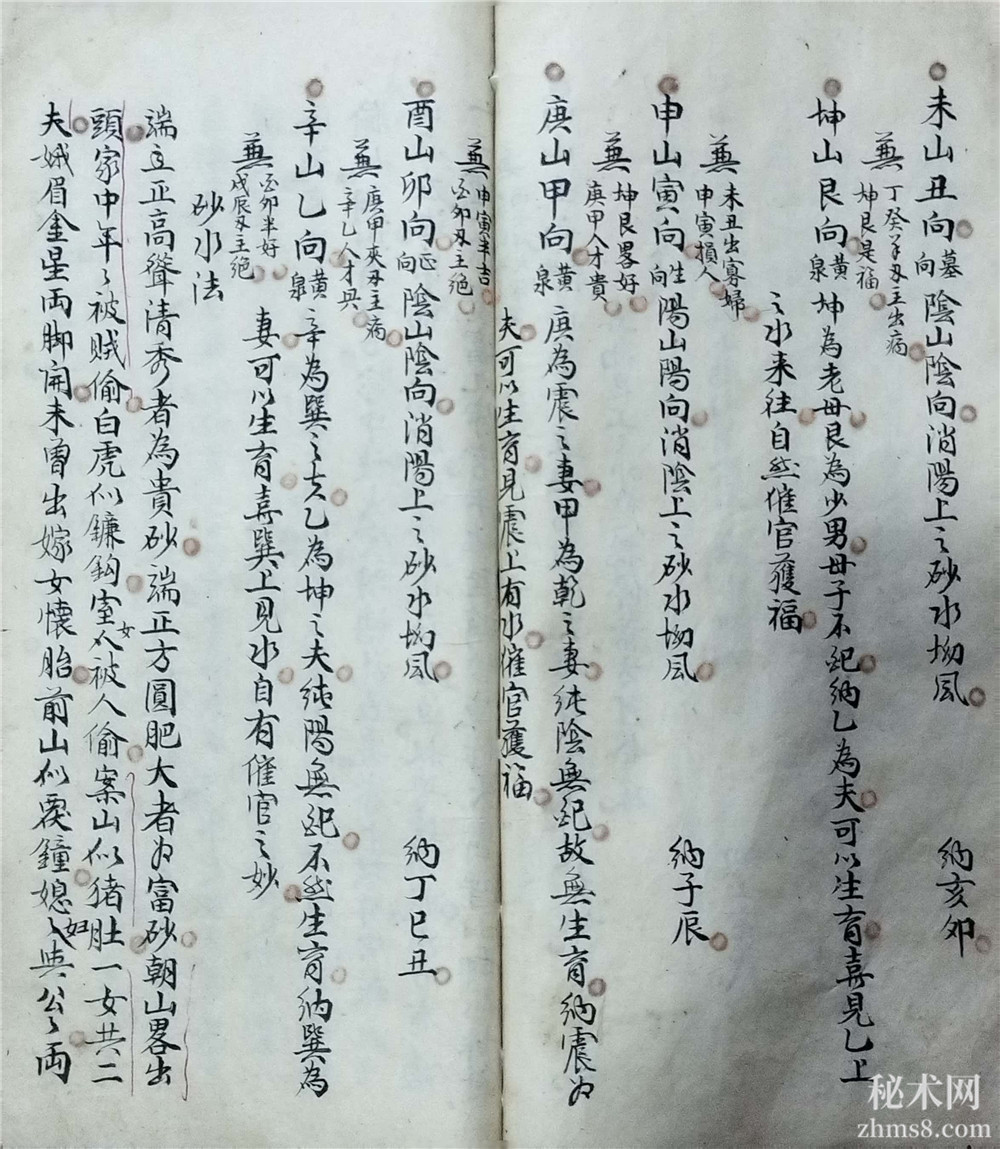 未山丑向墓向陰山陰向消陽上之砂水拗風 納亥卯
兼丁癸羊刃主出病 坤艮是福
坤山艮向黃泉坤為老母艮為少男母子不紀納乙為夫可以生育喜見乙上
之水来往自然催官獲福
兼未丑出寡婦 申寅損人
申山寅向生向陽山陽向消陰上之砂水拗風 納子辰
兼坤艮畧好 庚甲人才貴
庚山甲向黃泉庚為震之妻甲為乾之妻純陰無紀故無生育納震为
夫可以生育見震上有水催官獲福
兼申寅半吉 酉卯刃主絕
酉山卯向正向陰山陰向消陽上之砂水拗風 納丁巳丑
兼庚甲夾刃主病 辛乙人才兴
辛山乙向黃泉辛為巽之夫乙為坤之夫純陽無紀不然生育納巽為
妻可以生育喜巽上見水自有催官之妙
兼酉卯半好 戌辰刃主絕
砂水法
端立正高聳清秀者為貴砂端正方圓肥大者为富砂朝山畧出
頭家中年々被贼偷白虎似鐮鈎室女被人偷案山似猪肚一女共二
夫娥眉金星両脚開未曾出嫁女懷胎前山似覆鐘媳妇與公々両
秘术网
zhms8.com